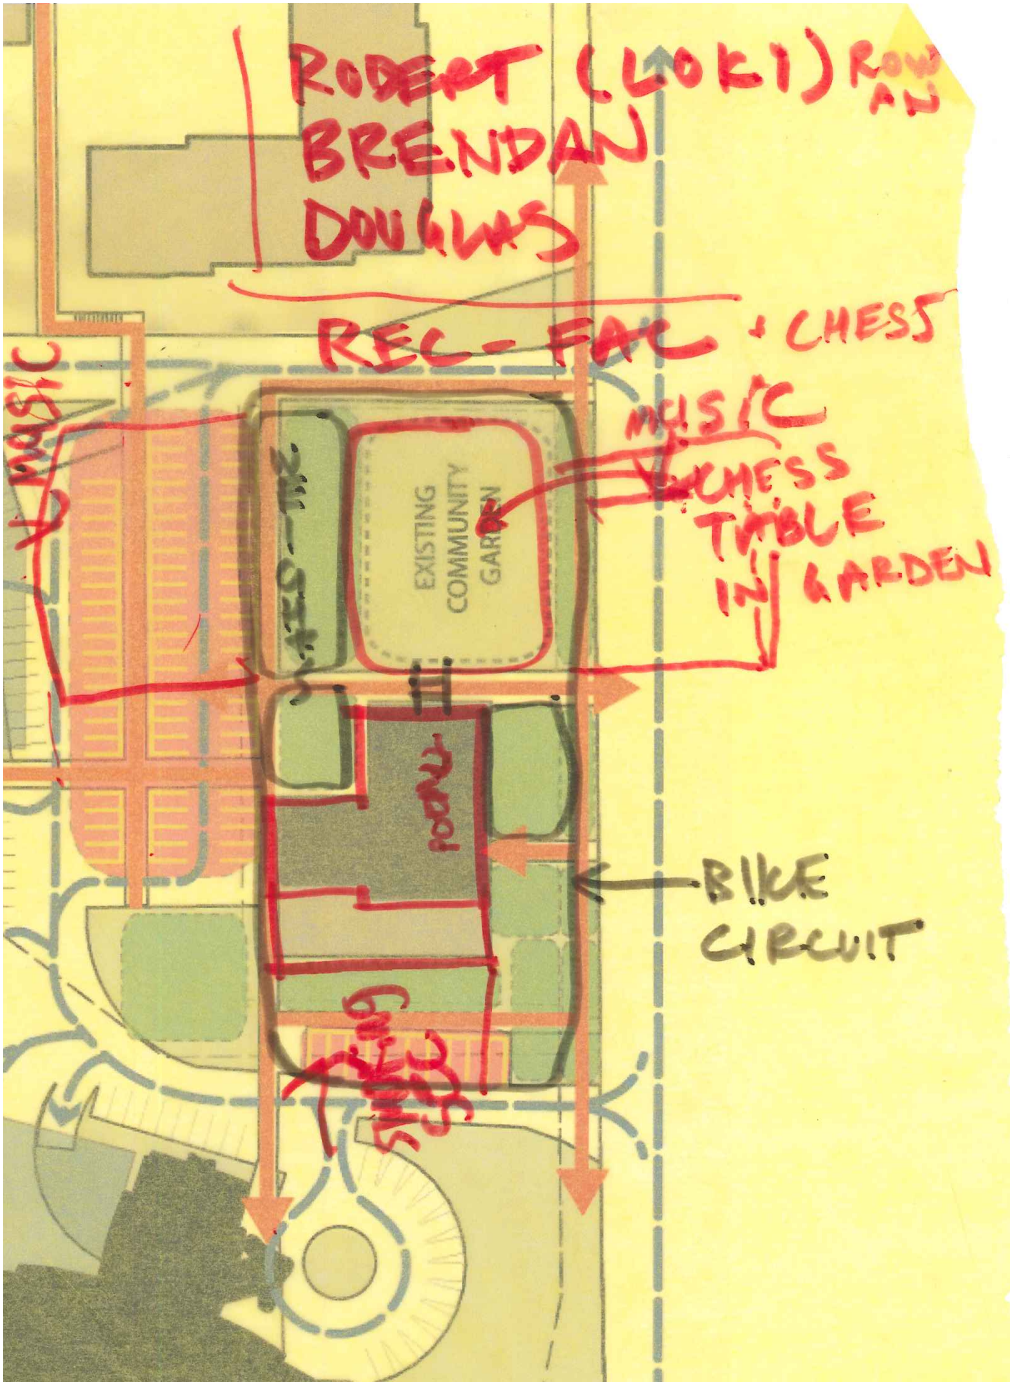 RODERT (LOKI) ROW
AN
BRENDAN
DOUGLAS
REC-FAC + CHESS
MUSIC
MUSIC
CHESS
TABLE
IN GARDEN
EXISTING
COMMUNITY
GARDEN
BIKE
CIRCUIT